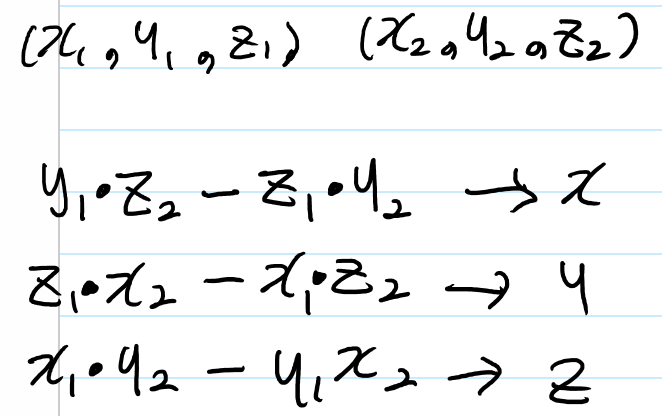 (x₁, y₁, z₁) (x₂, y₂, z₂)
y₁·z₂ − z₁·y₂ → x
z₁·x₂ − x₁·z₂ → y
x₁·y₂ − y₁x₂ → z